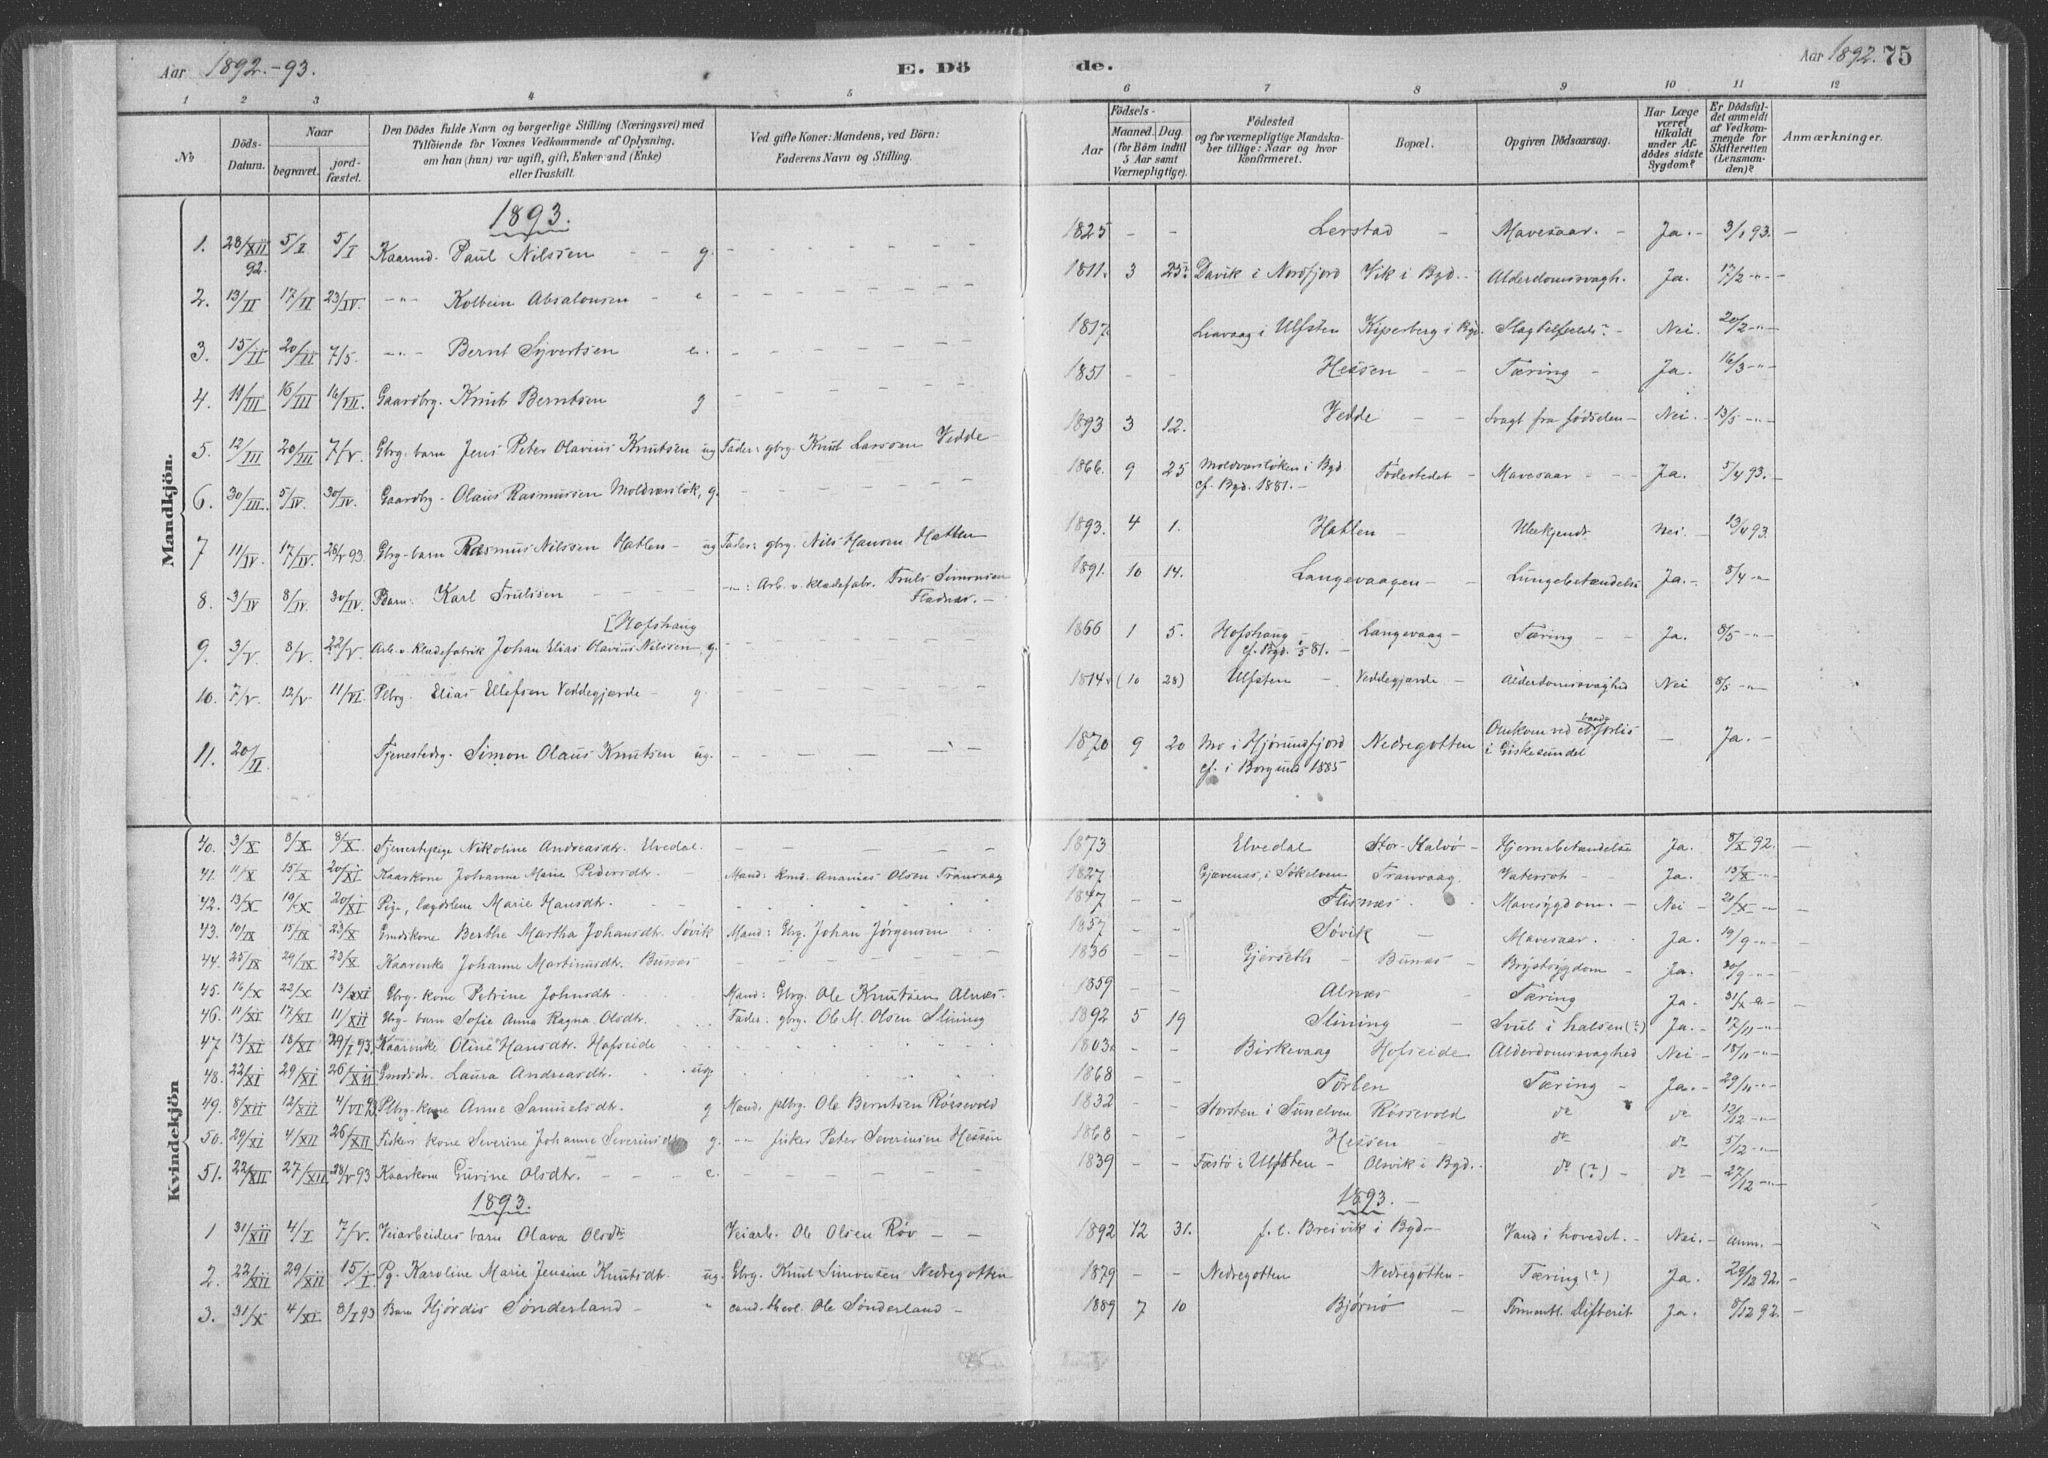 Aar 1892.-93.
E. Dö
de.
Aar 1892. 75
1 2 3 4 5 6 7 8 9 10 11 12
No
Döds-Datum.
Naar
begravet.
jord-fæstet.
Den Dödes fulde Navn og borgerlige Stilling (Næringsvei) med
Tilföiende for Voxnes Vedkommende af Oplysning,
om han (hun) var ugift, gift, Enkemand (Enke)
eller fraskilt.
Ved gifte Koner: Mandens, ved Börn:
Faderens Navn og Stilling.
Födsels-
Aar
Maaned. Dag.
(for Börn indtil
5 Aar samt
Værnepligtige).
Födested
og for værnepligtige Mandska-
ber tillige: Naar og hvor
konfirmeret.
Bopæl.
Opgiven Dödsaarsag.
Har Læge
været
tilkaldt
under Af-
dödes sidste
Sygdom?
Er Dödsfal-
det anmeldt
af Vedkom-
mende for
Skifteretten
(Lensman-
den)?
Anmærkninger.
Mandkjön.
1893.
1. 28/XII 92. 5/I 5/I Kaarmd. Paul Nilsen - - g. 1825 - - Lerstad - Mavesaar. - Ja. - 3/1 93. -
2. 13/II 17/II 23/IV. -"- Kolbein Absalonsen - e 1811. 3 25. Davik i Nordfjord Vik i Bgd. Alderdomssvagh. Ja. 17/2 -"-
3. 15/II 20/II 7/5. -"- Bernt Syvertsen e. 1817. Leavaag i Ulfsten Kiperberg i Bgd. Slagtilfælde? Nei. 20/2 -"-
4. 11/III 16/III 16/VII. Gaardbrg. Knut Berntsen g 1851 - - Hessen - - Tæring - Ja. 16/3 -"-
5. 12/III 20/III 7/V. Gbrg. barn Jens Peter Olavius Knutsen ug Fader: gbrg. Knut Larssen Vedde - 1893 3 12. Vedde - Svagt fra fødselen - Nei - 13/5 -"-
6. 30/III. 5/IV. 30/IV. Gaardbg. Olaus Rasmussen Moldværsløk, g. 1866. 9 25 Moldværsløken i Bgd cf. Bgd. 1881. - Fødestedet - Mavesaar - Ja. 5/4 93. -
7 11/IV. 17/IV. 28/V 93. Gbrg-barn Rasmus Nilssen Hatlen - ug Fader: gbrg. Nils Hansen Hatlen 1893. 4 1. Hatlen - Ubekjendt Nei. - 13/4 93.
8. 3/IV 8/IV. 30/IV. Barn: Karl Trulssen - - - -"-: Arb. v. klædefabr. Truls Simonsen Fladnæs. - 1891. 10 14. Langevaagen - - Lungebetændelse Ja. - 8/4 -"-
[Hofshaug
9. 3/V. 8/V. 22/V. Arb. v. Klædefabrik Johan Elias Olavius Nilssen, g. 1866 1 5. Hofshaug - cf. Bgd. 81. - Langevaag - Tæring - - Ja. 8/5 -"-
10. 7/V. 12/V 11/VI. Plbrg. Elias Ellefsen Veddegjærde - g. 1814. (10 28) Ulfsten - Veddegjærde - Alderdomssvaghed Nei 8/5 -"-
11. 20/II Tjenestedrg. Simon Olaus Knutsen ug. 1870 9 20 Mo i Hjørundfjord cf. i Borgund 1885 Nedregotten Omkom ved baadforlis i Giskesundet - Ja. -
Kvindekjön
40. 3/X 8/X 8/X. Tjenestepige Nikoline Andreasdtr. Elvedal. 1873 Elvedal Stor-Kalvø - Hjernebetændelse Ja. 8/X 92. -
41. 11/X 15/X 20/XI Kaarkone Johanne Marie Pedersdtr. - Mand: kmd. Ananias Olsen Tranvaag 1827 Gjævenæs, i Søkelven Tranvaag. Vatersot - Ja. 15/X -"-
42. 13/X 19/X 20/XI Pige, lægdslem Marie Hansdtr. 1847 - - Flisnæs. Mavesygdom. - Nei - 21/X -"- -
43. 10/IX 15/IX 23/X Gmdskone Berthe Martha Johansdtr. Søvik Mand: Gbrg. Johan Jørgensen 1857 - - Søvik - Mavesaar. Ja. 19/9 -"-
44. 25/IX 29/IX 23/X Kaarenke Johanne Martinusdtr. Bunæs 1836 - - Gjerseth - Bunæs - Brystsygdom - Ja. 30/9 -"-
45. 16/X 22/X 13/XI Gbrg-kone Petrine Johnsdtr. Mand: Gbrg. Ole Knutsen Alnæs. 1859 - - Alnæs - Tæring Ja. 31/X -"-
46. 11/XI 17/XI 11/XII Gbrg-barn Sofie Anna Ragna Olsdtr. Fader: gbrg. Ole M. Olsen Slining 1892 5 19 Slining - Svul i halsen (?) Ja. - 17/11 -"-
47 13/XI 18/XI 29/I 93. Kaarenke Oline Hansdtr. Hofseide 1803. - - Birkevaag Hofseide Alderdomssvaghed Nei - 18/11 -"-
48. 22/XI 29/XI 26/XII Gmdsdtr. Laura Andreasdtr. ug. 1868 - - Tørlen Tæring - Ja. - 29/11 -"-
49. 8/XII 12/XII 4/VI 93 Plbrg-kone Anne Samuelsdtr. g Mand: plbrg. Ole Berntsen Røssevold 1832 - - Stordten i Sunelven Røssevold do do 12/12 -"-
50. 29/XI 4/XII 26/XII Fiskers kone Severine Johanne Severinsdtr. g. -"- fisker Peter Severinsen Hessen 1868 - - Hessen - do do 5/12 -"-
51. 22/XII 27/XII 28/V 93 Kaarkone Gurine Olsdtr. - - e. 1839 - - Fæstø i Ulfsten - Olsvik i Bgd. do (?) - do - 27/12 -"-
1893.
1893. -
1 31/XII 4/I 7/V. Veiarbeiders barn Olava Olsdtr. Veiarb. Ole Olsen Røv - - 1892 12 31. f. t. Breivik i Bgd - Vand i hovedet. - Nei. - anm. -
2. 22/XII 29/XII 15/I. Pg. Karoline Marie Jensine Knutsdtr. ug. Gbrg. Knut Simonsen Nedregotten 1879 - - Nedregotten Nedregotten - Tæring (?) Ja. 29/12 92. -
3. 31/X 4/XI. 8/I 93 Barn Hjørdis Sønderland - " cand. theol. Ole Sønderland - 1889 7 10 Bjørnø - Difterit Ja. 8/12 92. -